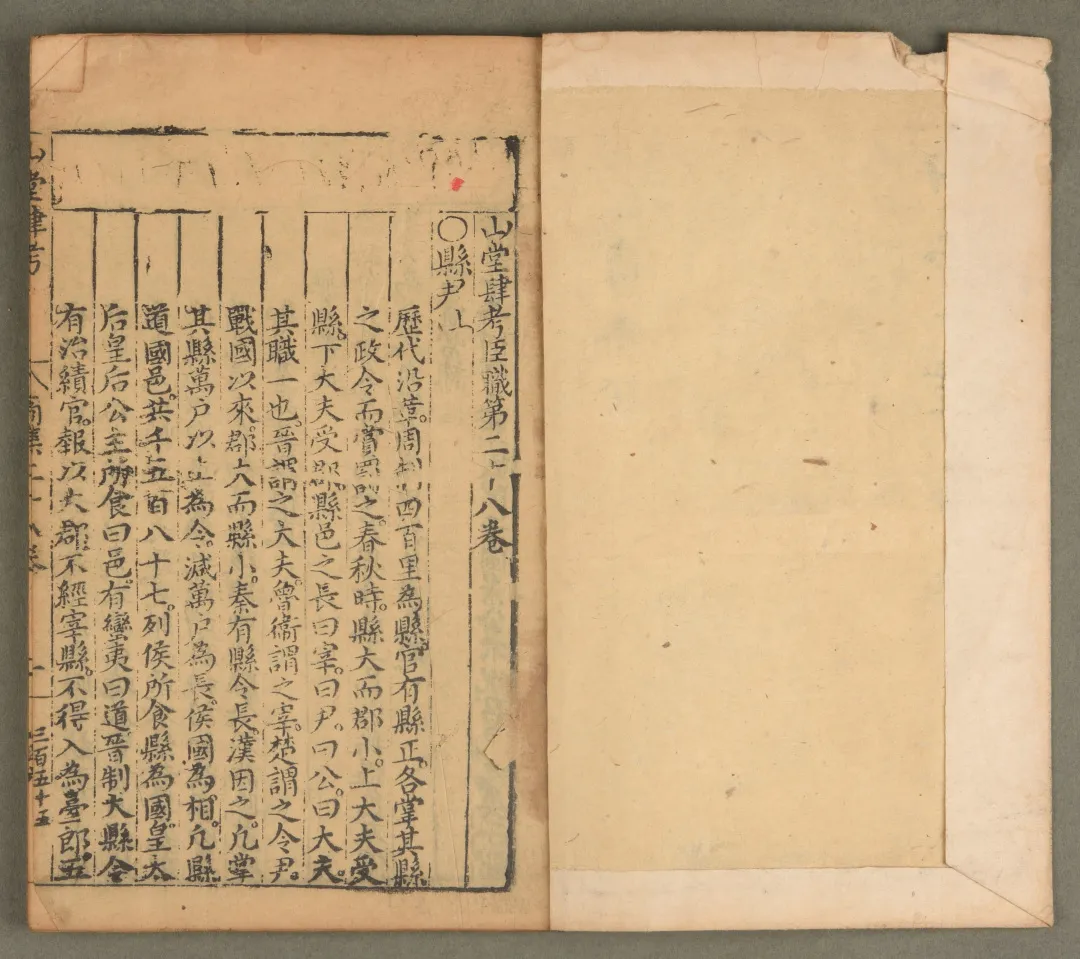 山堂肆考臣職第二十八卷
○縣尹上
歷代沿革。周制四百里為縣。官有縣正。各掌其縣
之政令而賞罰之。春秋時。縣大而郡小。上大夫受
縣。下大夫受郡。縣邑之長曰宰。曰尹。曰公。曰大夫。
其職一也。晉謂之大夫。魯衛謂之宰。楚謂之令尹。
戰國以來。郡大而縣小。秦有縣令長。漢因之。凡掌
其縣萬戶以上為令。減萬戶為長。侯國為相。凡縣
道國邑。共千五百八十七。列侯所食縣為國。皇太
后皇后公主所食曰邑。有蠻夷曰道。晉制大縣令
有治績官。報以大郡。不經宰縣。不得入為臺郎。五
山堂肆考
三百五十五